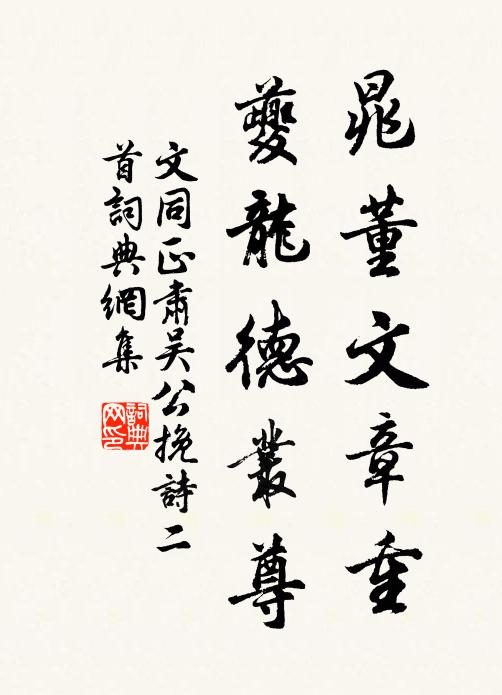 晁董文章重
夔龍德業尊
文同正肅吳公挽詩二
首詞典網集
詞典
网印